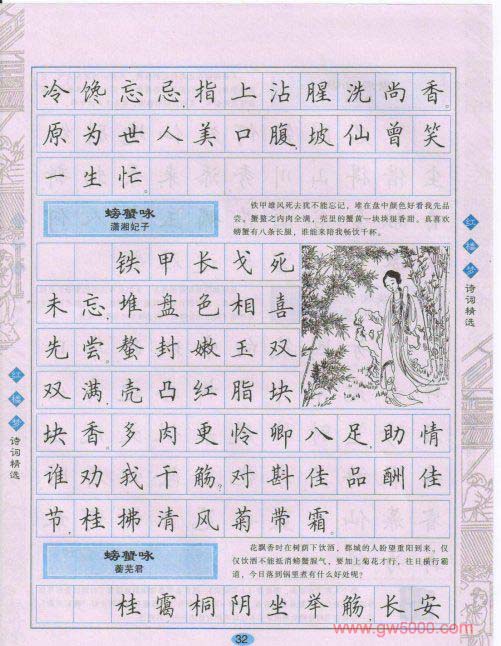 冷馋忘忌,指上沾腥洗尚香。
原为世人美口腹,坡仙曾笑
一生忙。
螃蟹咏
潇湘妃子
铁甲雄风死去犹不能忘记，堆在盘中颜色好看我先品
尝。蟹螯之内肉全满，壳里的蟹黄一块块很香甜。真喜欢
螃蟹有八条长腿，谁能来陪我畅饮千杯。
铁甲长戈死
未忘,堆盘色相喜
先尝。螯封嫩玉双
双满,壳凸红脂块
块香。多肉更怜卿八足,助情
谁劝我千觞?对斟佳品酬佳
节,桂拂清风菊带霜。
螃蟹咏
蘅芜君
花飘香时在树荫下饮酒，都城的人盼望重阳到来。仅
仅饮酒不能抵消螃蟹腥气，要加上菊花才行，往日横行霸
道，今日落到锅里煮有什么好处呢？
桂霭桐阴坐举觞,长安
32
红楼梦
诗词精选
红楼梦
诗词精选
www.gw5000.com